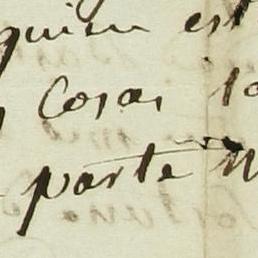 quien est
Cosas to
parte m